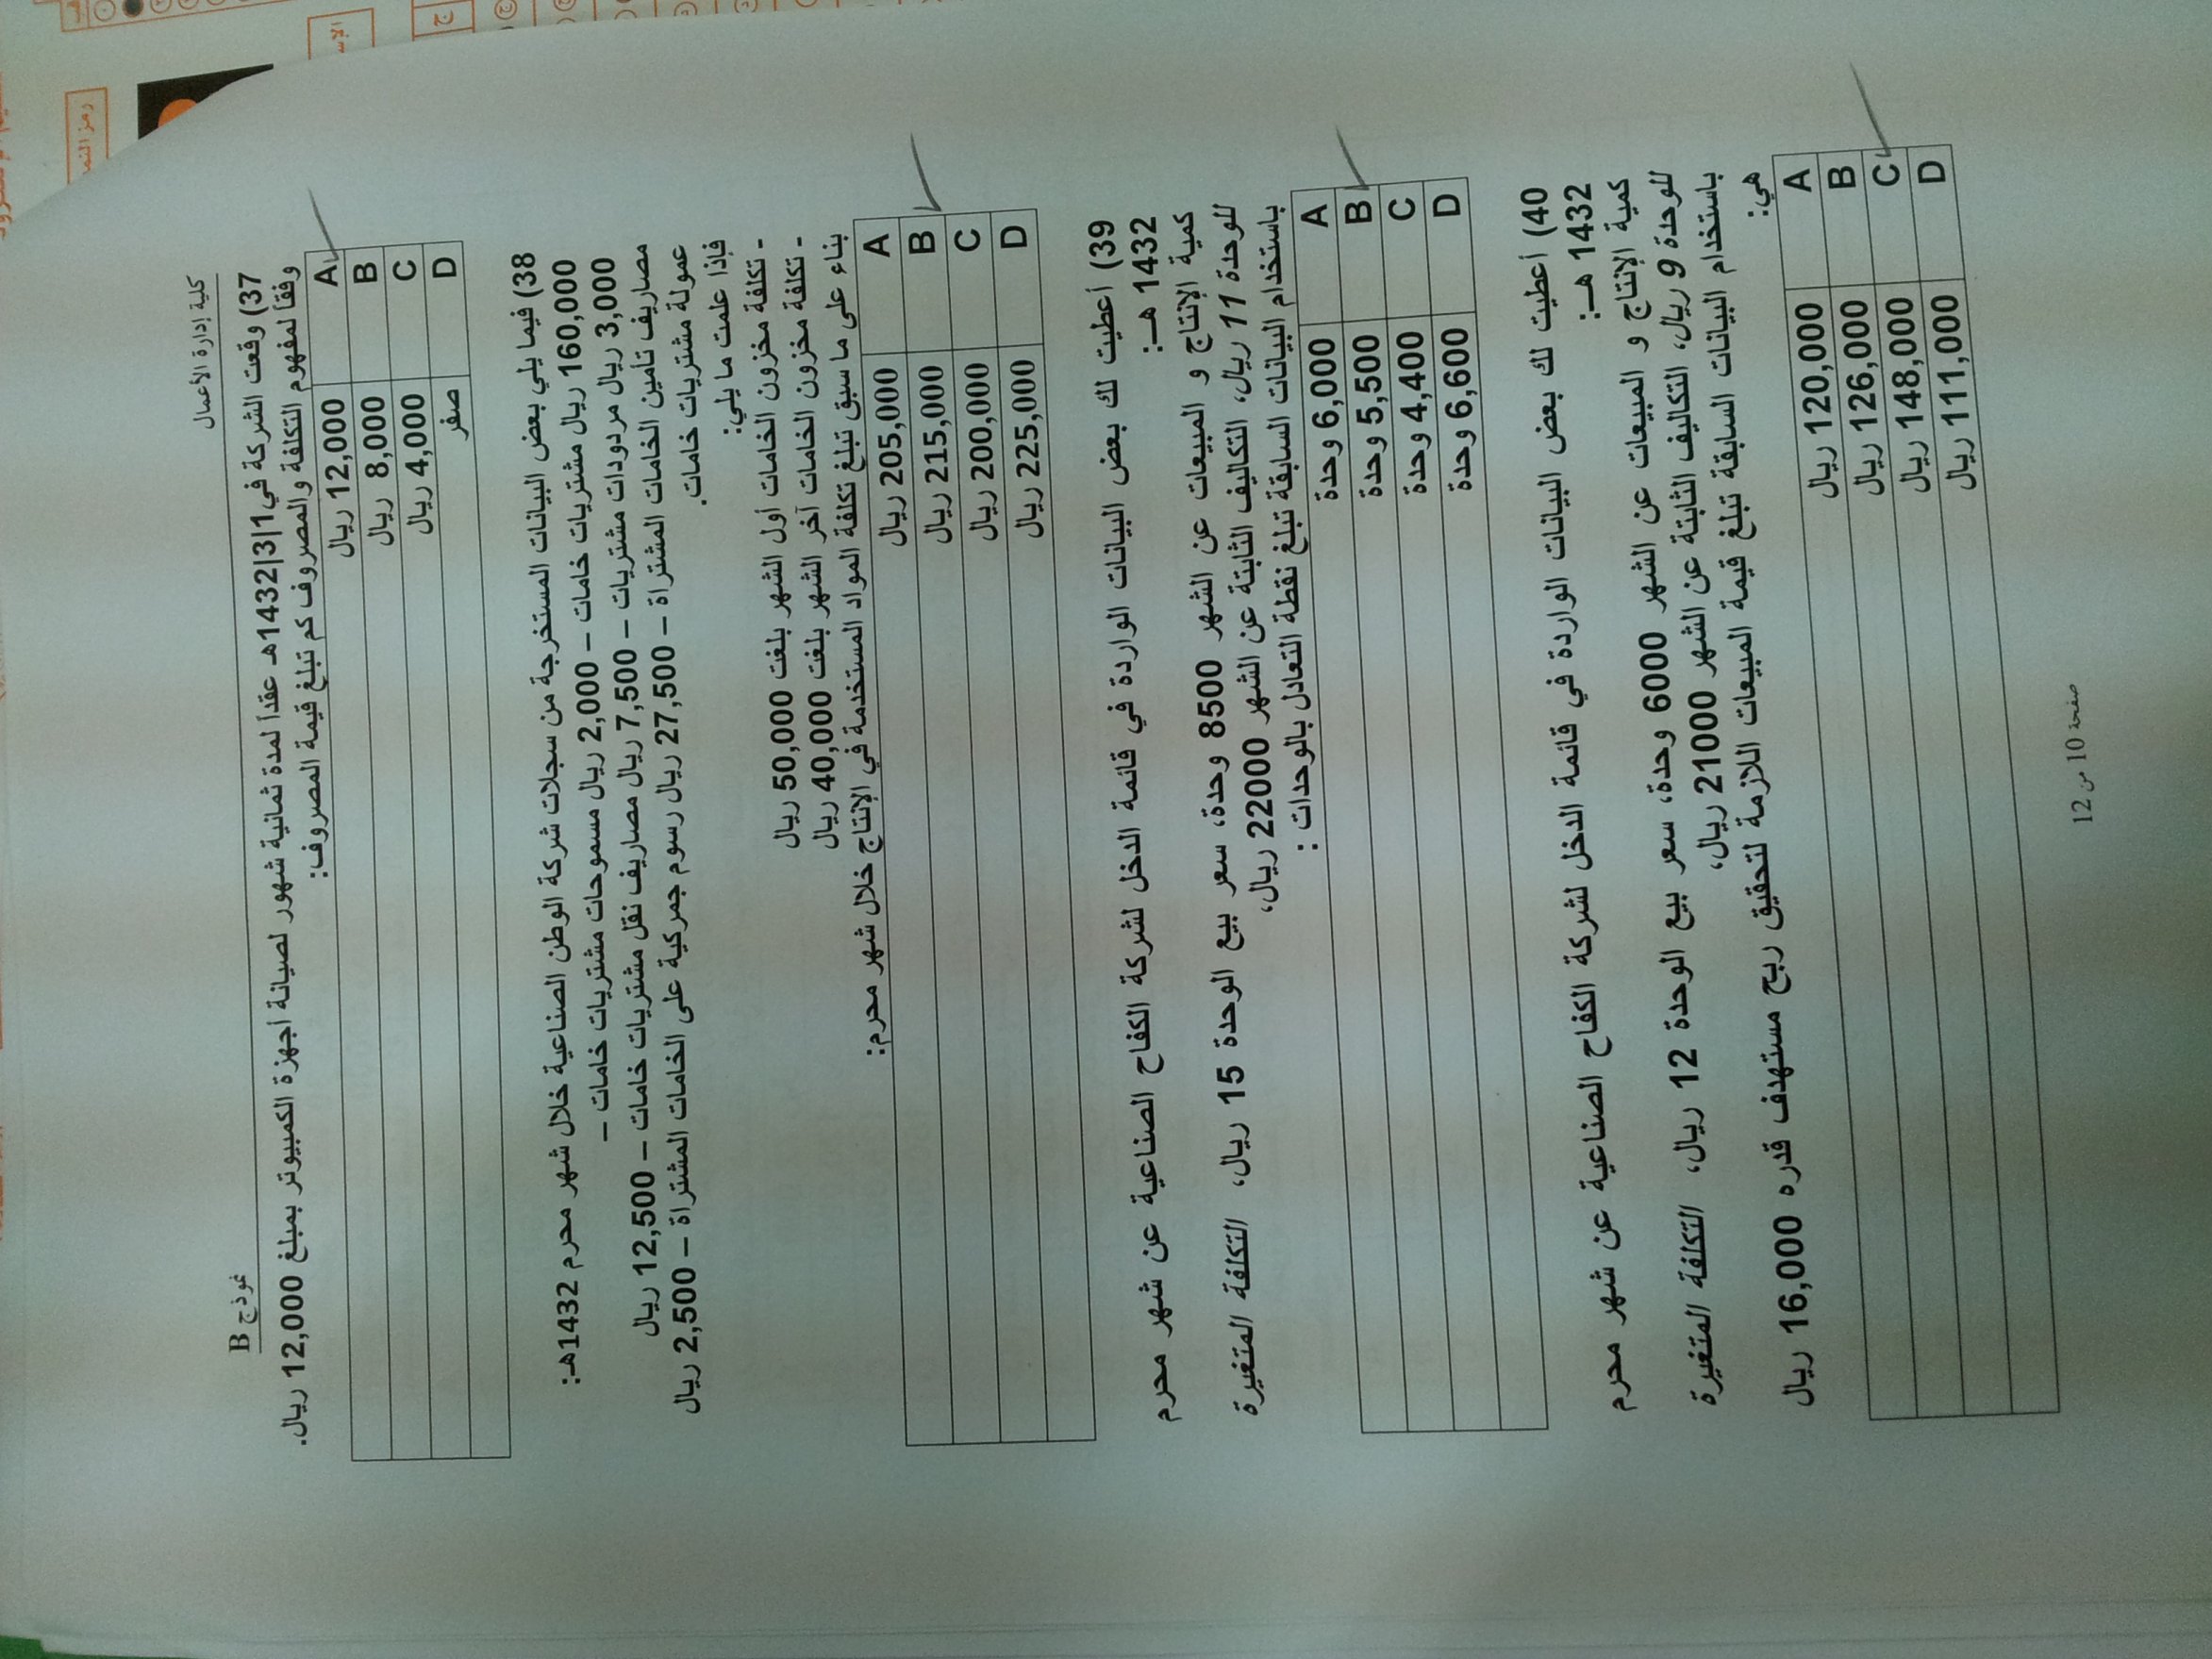 كلية إدارة الأعمال
نموذج B
37) وقعت الشركة في1|3|1432هـ عقداً لمدة ثمانية شهور لصيانة أجهزة الكمبيوتر بمبلغ 12,000 ريال.
وفقاً لمفهوم التكلفة والمصروف كم تبلغ قيمة المصروف:
A 12,000 ريال
B 8,000 ريال
C 4,000 ريال
D صفر
38) فيما يلي بعض البيانات المستخرجة من سجلات شركة الوطن الصناعية خلال شهر محرم 1432هـ:
160,000 ريال مشتريات خامات – 2,000 ريال مسموحات مشتريات خامات –
3,000 ريال مردودات مشتريات – 7,500 ريال مصاريف نقل مشتريات خامات – 12,500 ريال
مصاريف تأمين الخامات المشتراة – 27,500 ريال رسوم جمركية على الخامات المشتراة – 2,500 ريال
عمولة مشتريات خامات.
فإذا علمت ما يلي:
- تكلفة مخزون الخامات أول الشهر بلغت 50,000 ريال
- تكلفة مخزون الخامات آخر الشهر بلغت 40,000 ريال
بناء على ما سبق تبلغ تكلفة المواد المستخدمة في الإنتاج خلال شهر محرم:
A 205,000 ريال
B 215,000 ريال
C 200,000 ريال
D 225,000 ريال
39) أعطيت لك بعض البيانات الواردة في قائمة الدخل لشركة الكفاح الصناعية عن شهر محرم
1432 هـ:
كمية الإنتاج و المبيعات عن الشهر 8500 وحدة، سعر بيع الوحدة 15 ريال، التكلفة المتغيرة
للوحدة 11 ريال، التكاليف الثابتة عن الشهر 22000 ريال،
باستخدام البيانات السابقة تبلغ نقطة التعادل بالوحدات :
A 6,000 وحدة
B 5,500 وحدة
C 4,400 وحدة
D 6,600 وحدة
40) أعطيت لك بعض البيانات الواردة في قائمة الدخل لشركة الكفاح الصناعية عن شهر محرم
1432 هـ:
كمية الإنتاج و المبيعات عن الشهر 6000 وحدة، سعر بيع الوحدة 12 ريال، التكلفة المتغيرة
للوحدة 9 ريال، التكاليف الثابتة عن الشهر 21000 ريال،
باستخدام البيانات السابقة تبلغ قيمة المبيعات اللازمة لتحقيق ربح مستهدف قدره 16,000 ريال
هي:
A 120,000 ريال
B 126,000 ريال
C 148,000 ريال
D 111,000 ريال
صفحة 10 من 12